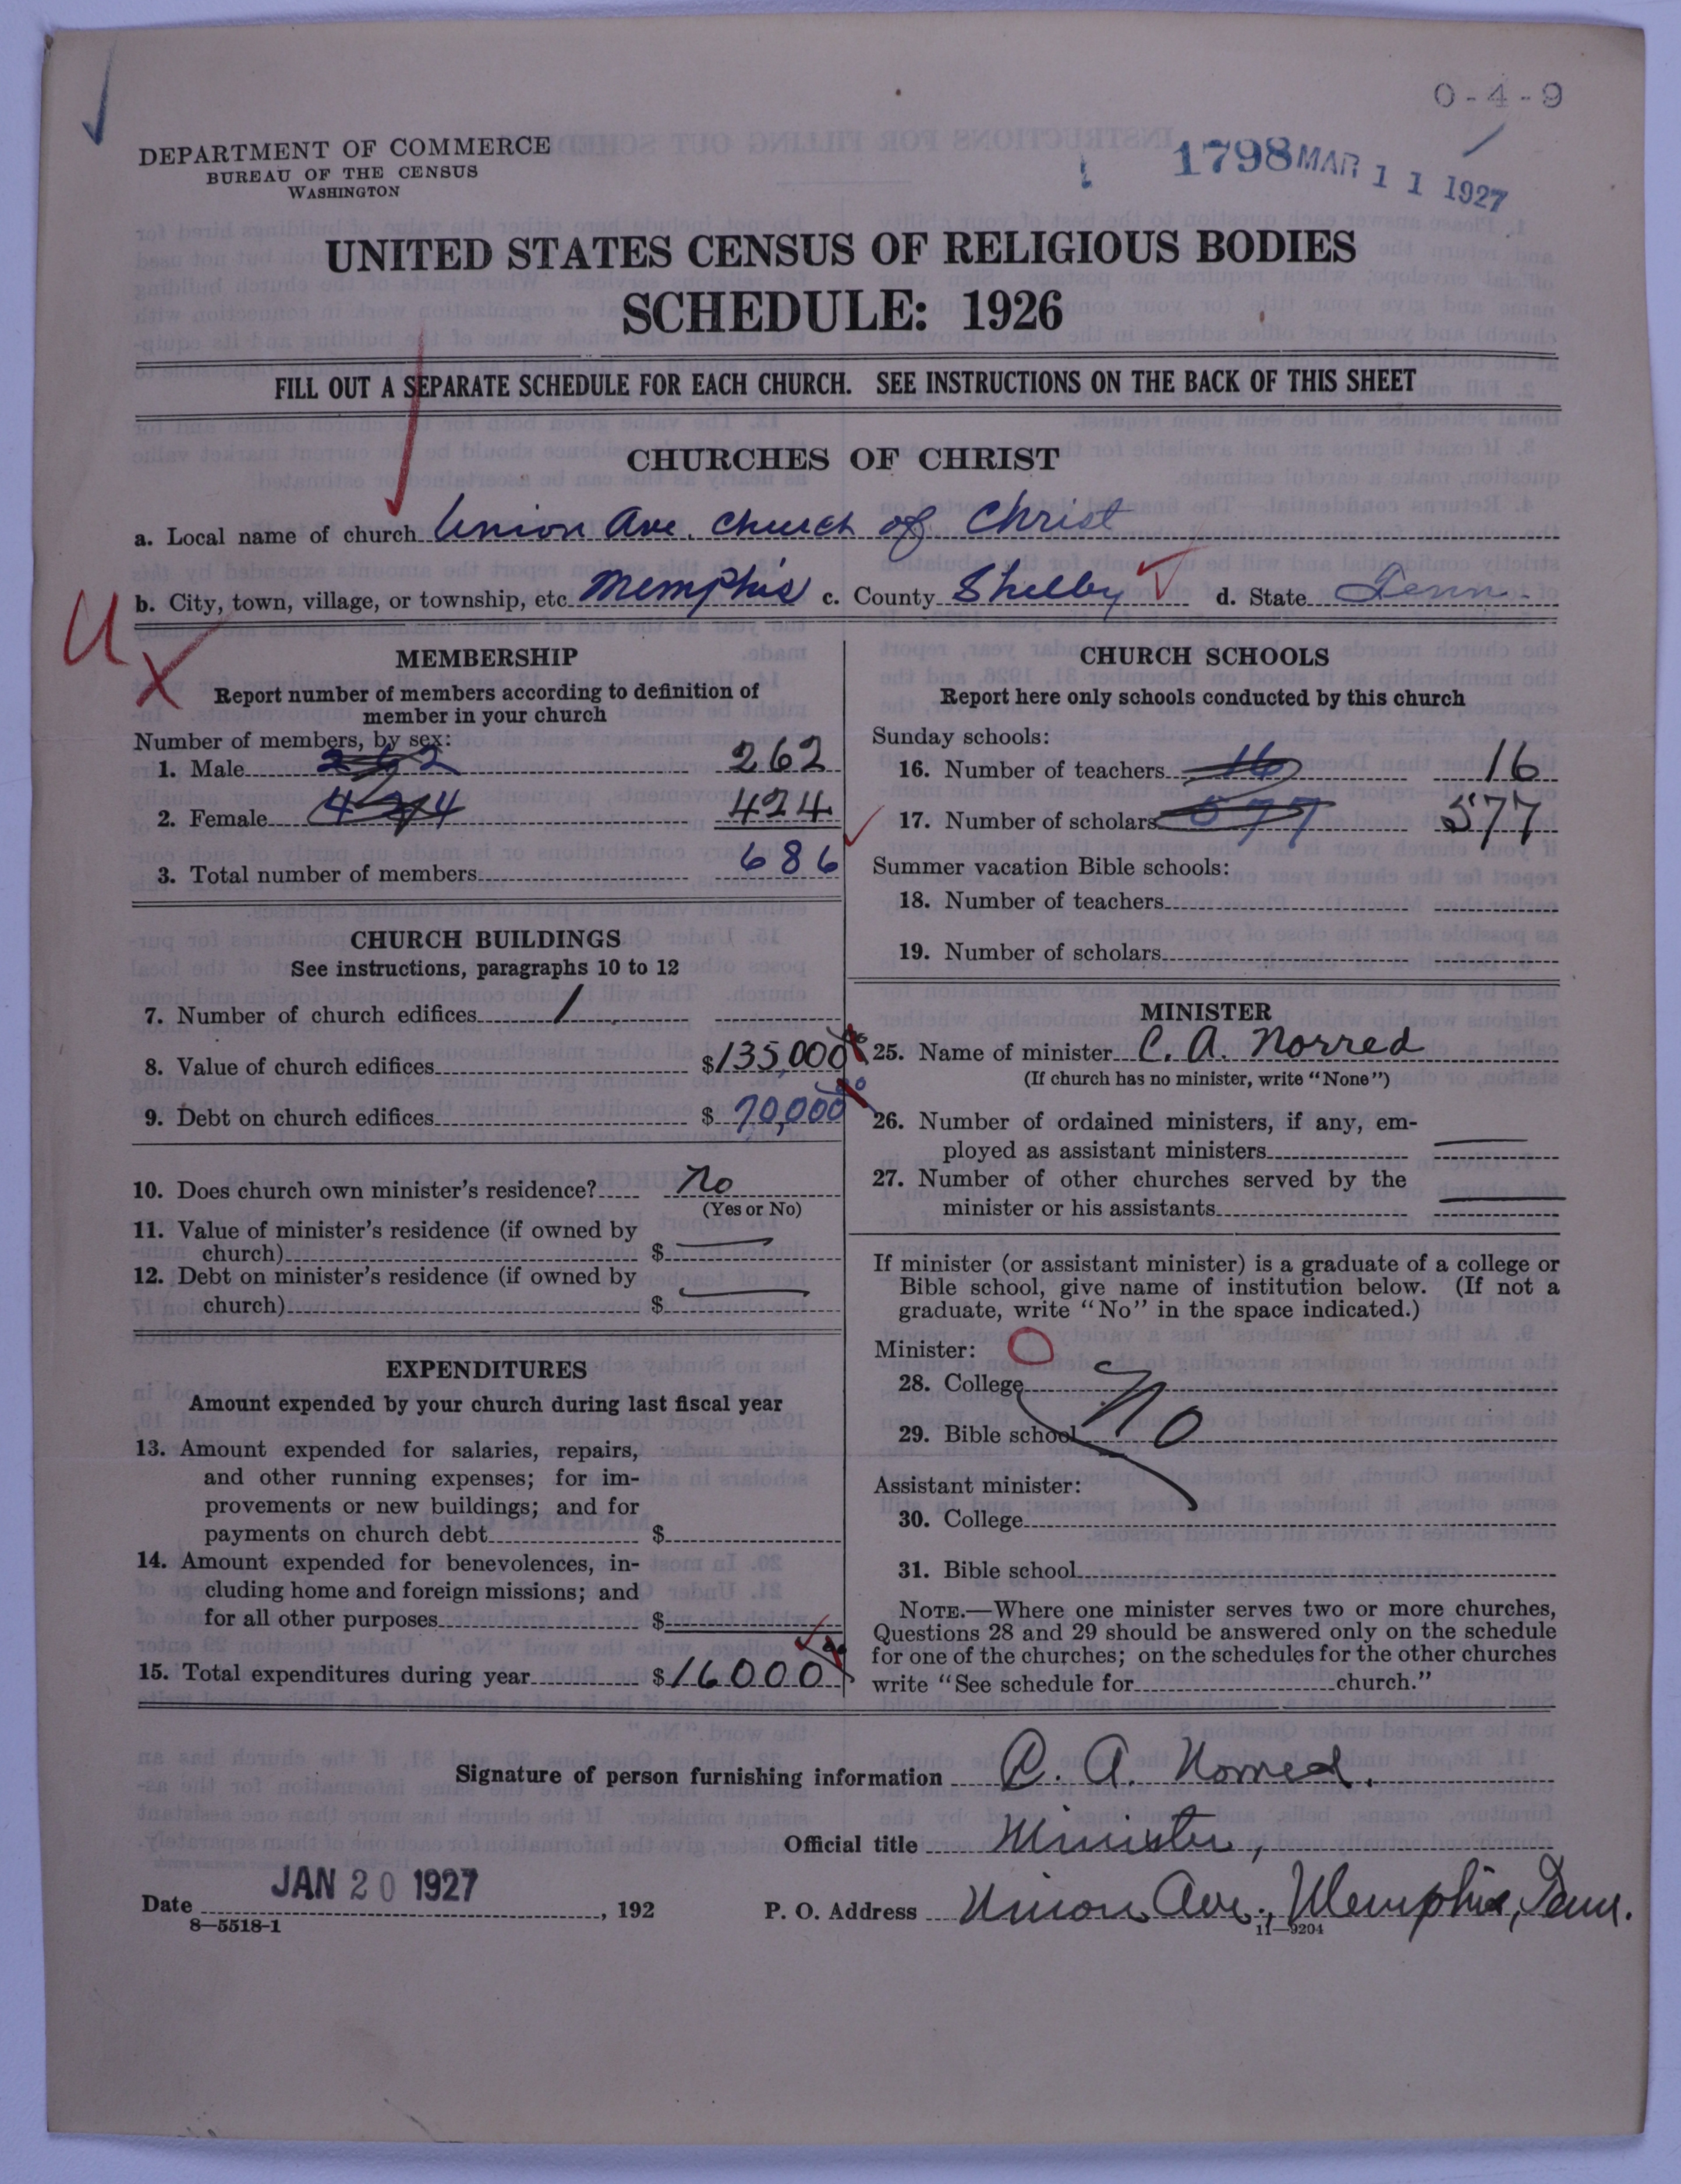 0-4-9
1798 MAR 11 1927
DEPARTMENT OF COMMERCE
BUREAU OF THE CENSUS
WASHINGTON
UNITED STATES CENSUS OF RELIGIOUS BODIES
SCHEDULE: 1926
FILL OUT A SEPARATE SCHEDULE FOR EACH CHURCH. SEE INSTRUCTIONS ON THE BACK OF THIS SHEET
CHURCHES OF CHRIST
a. Local name of church Union Ave. Church of Christ
b. City, town, village, or township, etc Memphis c. County Shelby d. State Tenn.
U
X
MEMBERSHIP
Report number of members according to definition of
member in your church
Number of members, by sex:
1. Male 262 262
2. Female 424 424
3. Total number of members 686
CHURCH BUILDINGS
See instructions, paragraphs 10 to 12
7. Number of church edifices 1
8. Value of church edifices $135,000
9. Debt on church edifices $ 70,000
10. Does church own minister's residence? No
(Yes or No)
11. Value of minister's residence (if owned by
church) $
12. Debt on minister's residence (if owned by
church) $
EXPENDITURES
Amount expended by your church during last fiscal year
13. Amount expended for salaries, repairs,
and other running expenses; for im-
provements or new buildings; and for
payments on church debt $
14. Amount expended for benevolences, in-
cluding home and foreign missions; and
for all other purposes $
15. Total expenditures during year $16000
CHURCH SCHOOLS
Report here only schools conducted by this church
Sunday schools:
16. Number of teachers 16 16
17. Number of scholars 577 577
Summer vacation Bible schools:
18. Number of teachers
19. Number of scholars
MINISTER
25. Name of minister C. A. Norred
(If church has no minister, write "None")
26. Number of ordained ministers, if any, em-
ployed as assistant ministers
27. Number of other churches served by the
minister or his assistants
If minister (or assistant minister) is a graduate of a college or
Bible school, give name of institution below. (If not a
graduate, write "No" in the space indicated.)
Minister:
28. College
No
29. Bible school
Assistant minister:
30. College
31. Bible school
NOTE.—Where one minister serves two or more churches,
Questions 28 and 29 should be answered only on the schedule
for one of the churches; on the schedules for the other churches
write "See schedule for church."
Signature of person furnishing information C. A. Norred.
Official title Minister,
Date JAN 20 1927, 192 P. O. Address Union Ave., Memphis, Tenn.
8—5518-1 11—9204